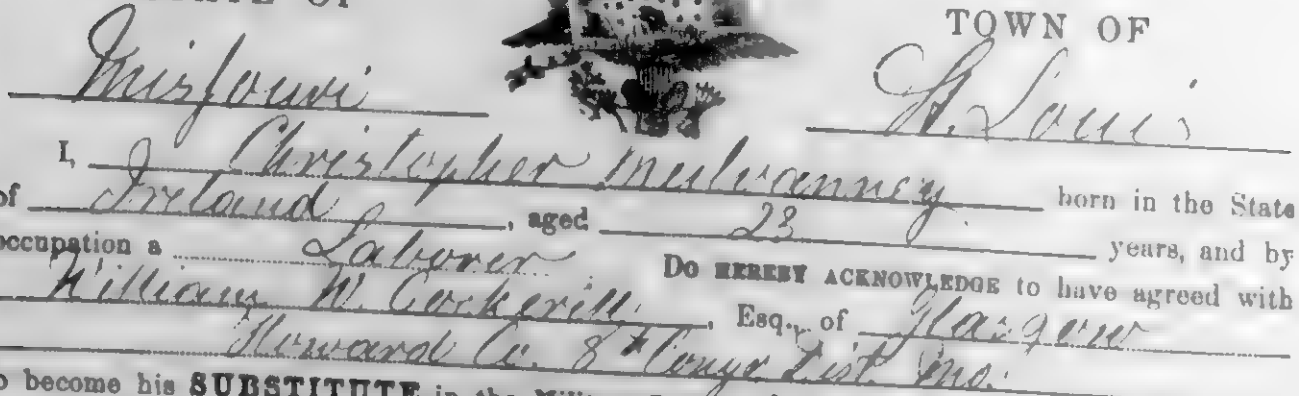 STATE OF
TOWN OF
Missouri
St. Louis
I, Christopher Mulvanney born in the State
of Ireland, aged 23 years, and by
occupation a Laborer Do HEREBY ACKNOWLEDGE to have agreed with
William W. Cockerill, Esq., of Glasgow
Howard Co. 8th Congr Dist. Mo.
to become his SUBSTITUTE in the